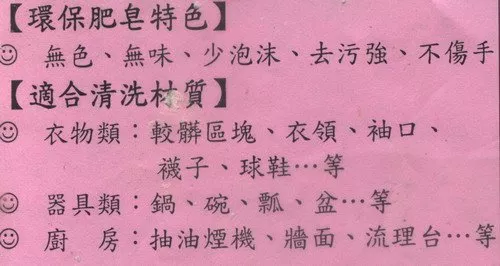 【環保肥皂特色】
☺ 無色、無味、少泡沫、去污強、不傷手
【適合清洗材質】
☺ 衣物類：較髒區塊、衣領、袖口、
襪子、球鞋…等
☺ 器具類：鍋、碗、瓢、盆…等
☺ 廚　房：抽油煙機、牆面、流理台…等